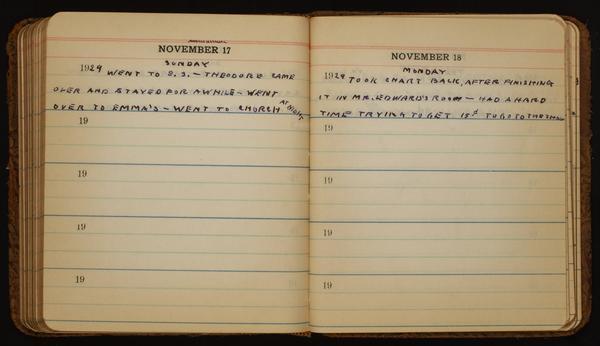 NOVEMBER 17
SUNDAY
1929 WENT TO S.S. — THEODORE CAME
OVER AND STAYED FOR AWHILE — WENT
OVER TO EMMA'S — WENT TO CHURCH AT NIGHT.
19
19
19
19
NOVEMBER 18
MONDAY
1929 TOOK CHART BACK, AFTER FINISHING
IT IN MR. EDWARD'S ROOM — HAD A HARD
TIME TRYING TO GET 15¢ TO GO TO THE SHOW
19
19
19
19